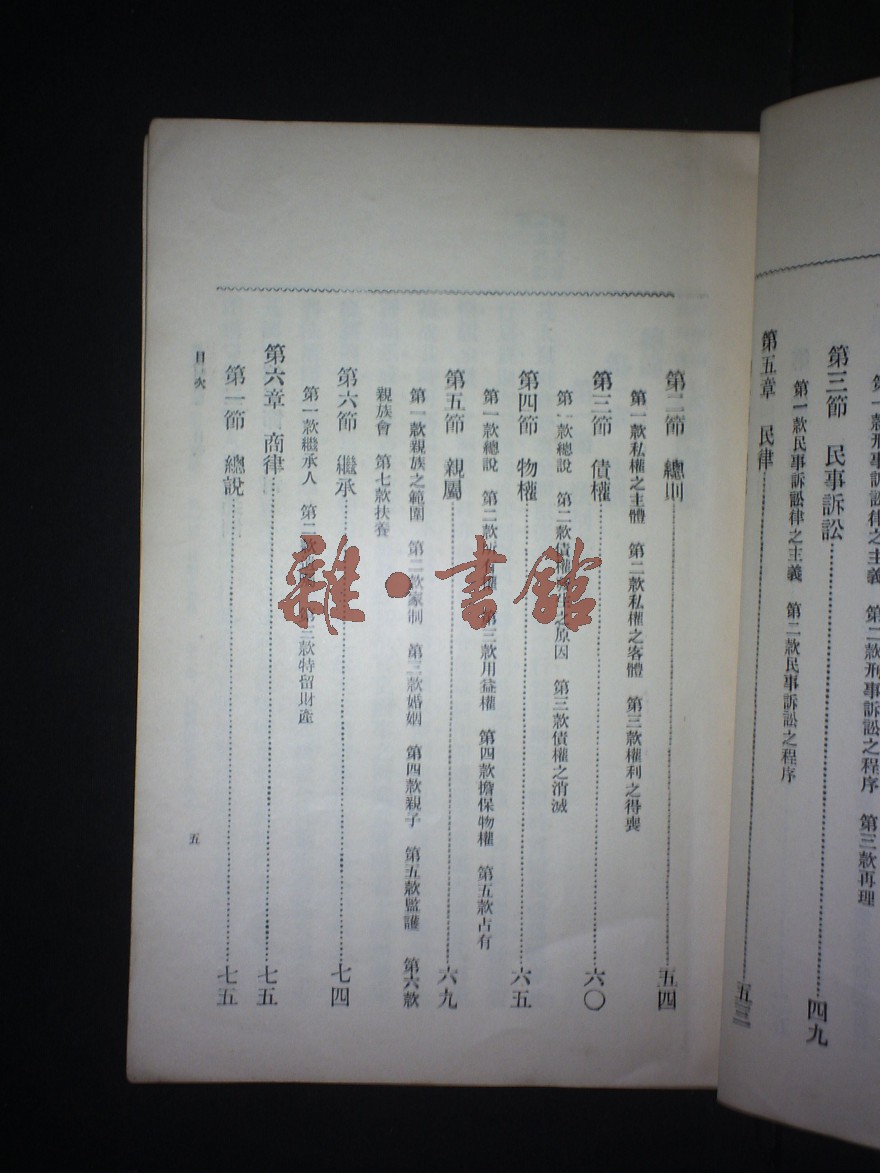 第一款刑事訴訟律之主義 第二款刑事訴訟之程序 第三款再理
第三節 民事訴訟 四九
第一款民事訴訟律之主義 第二款民事訴訟之程序
第五章 民律 五三
第二節 總則 五四
第一款私權之主體 第二款私權之客體 第三款權利之得喪
第三節 債權 六〇
第一款總說 第二款債權 之原因 第三款債權之消滅
第四節 物權 六五
第一款總說 第二款 權 第三款用益權 第四款擔保物權 第五款占有
第五節 親屬 六九
第一款親族之範圍 第二款家制 第三款婚姻 第四款親子 第五款監護 第六款
親族會 第七款扶養
第六節 繼承 七四
第一款繼承人 第二款 第三款特留財產
第六章 商律 七五
第一節 總說 七五
目次 五
雜·書館